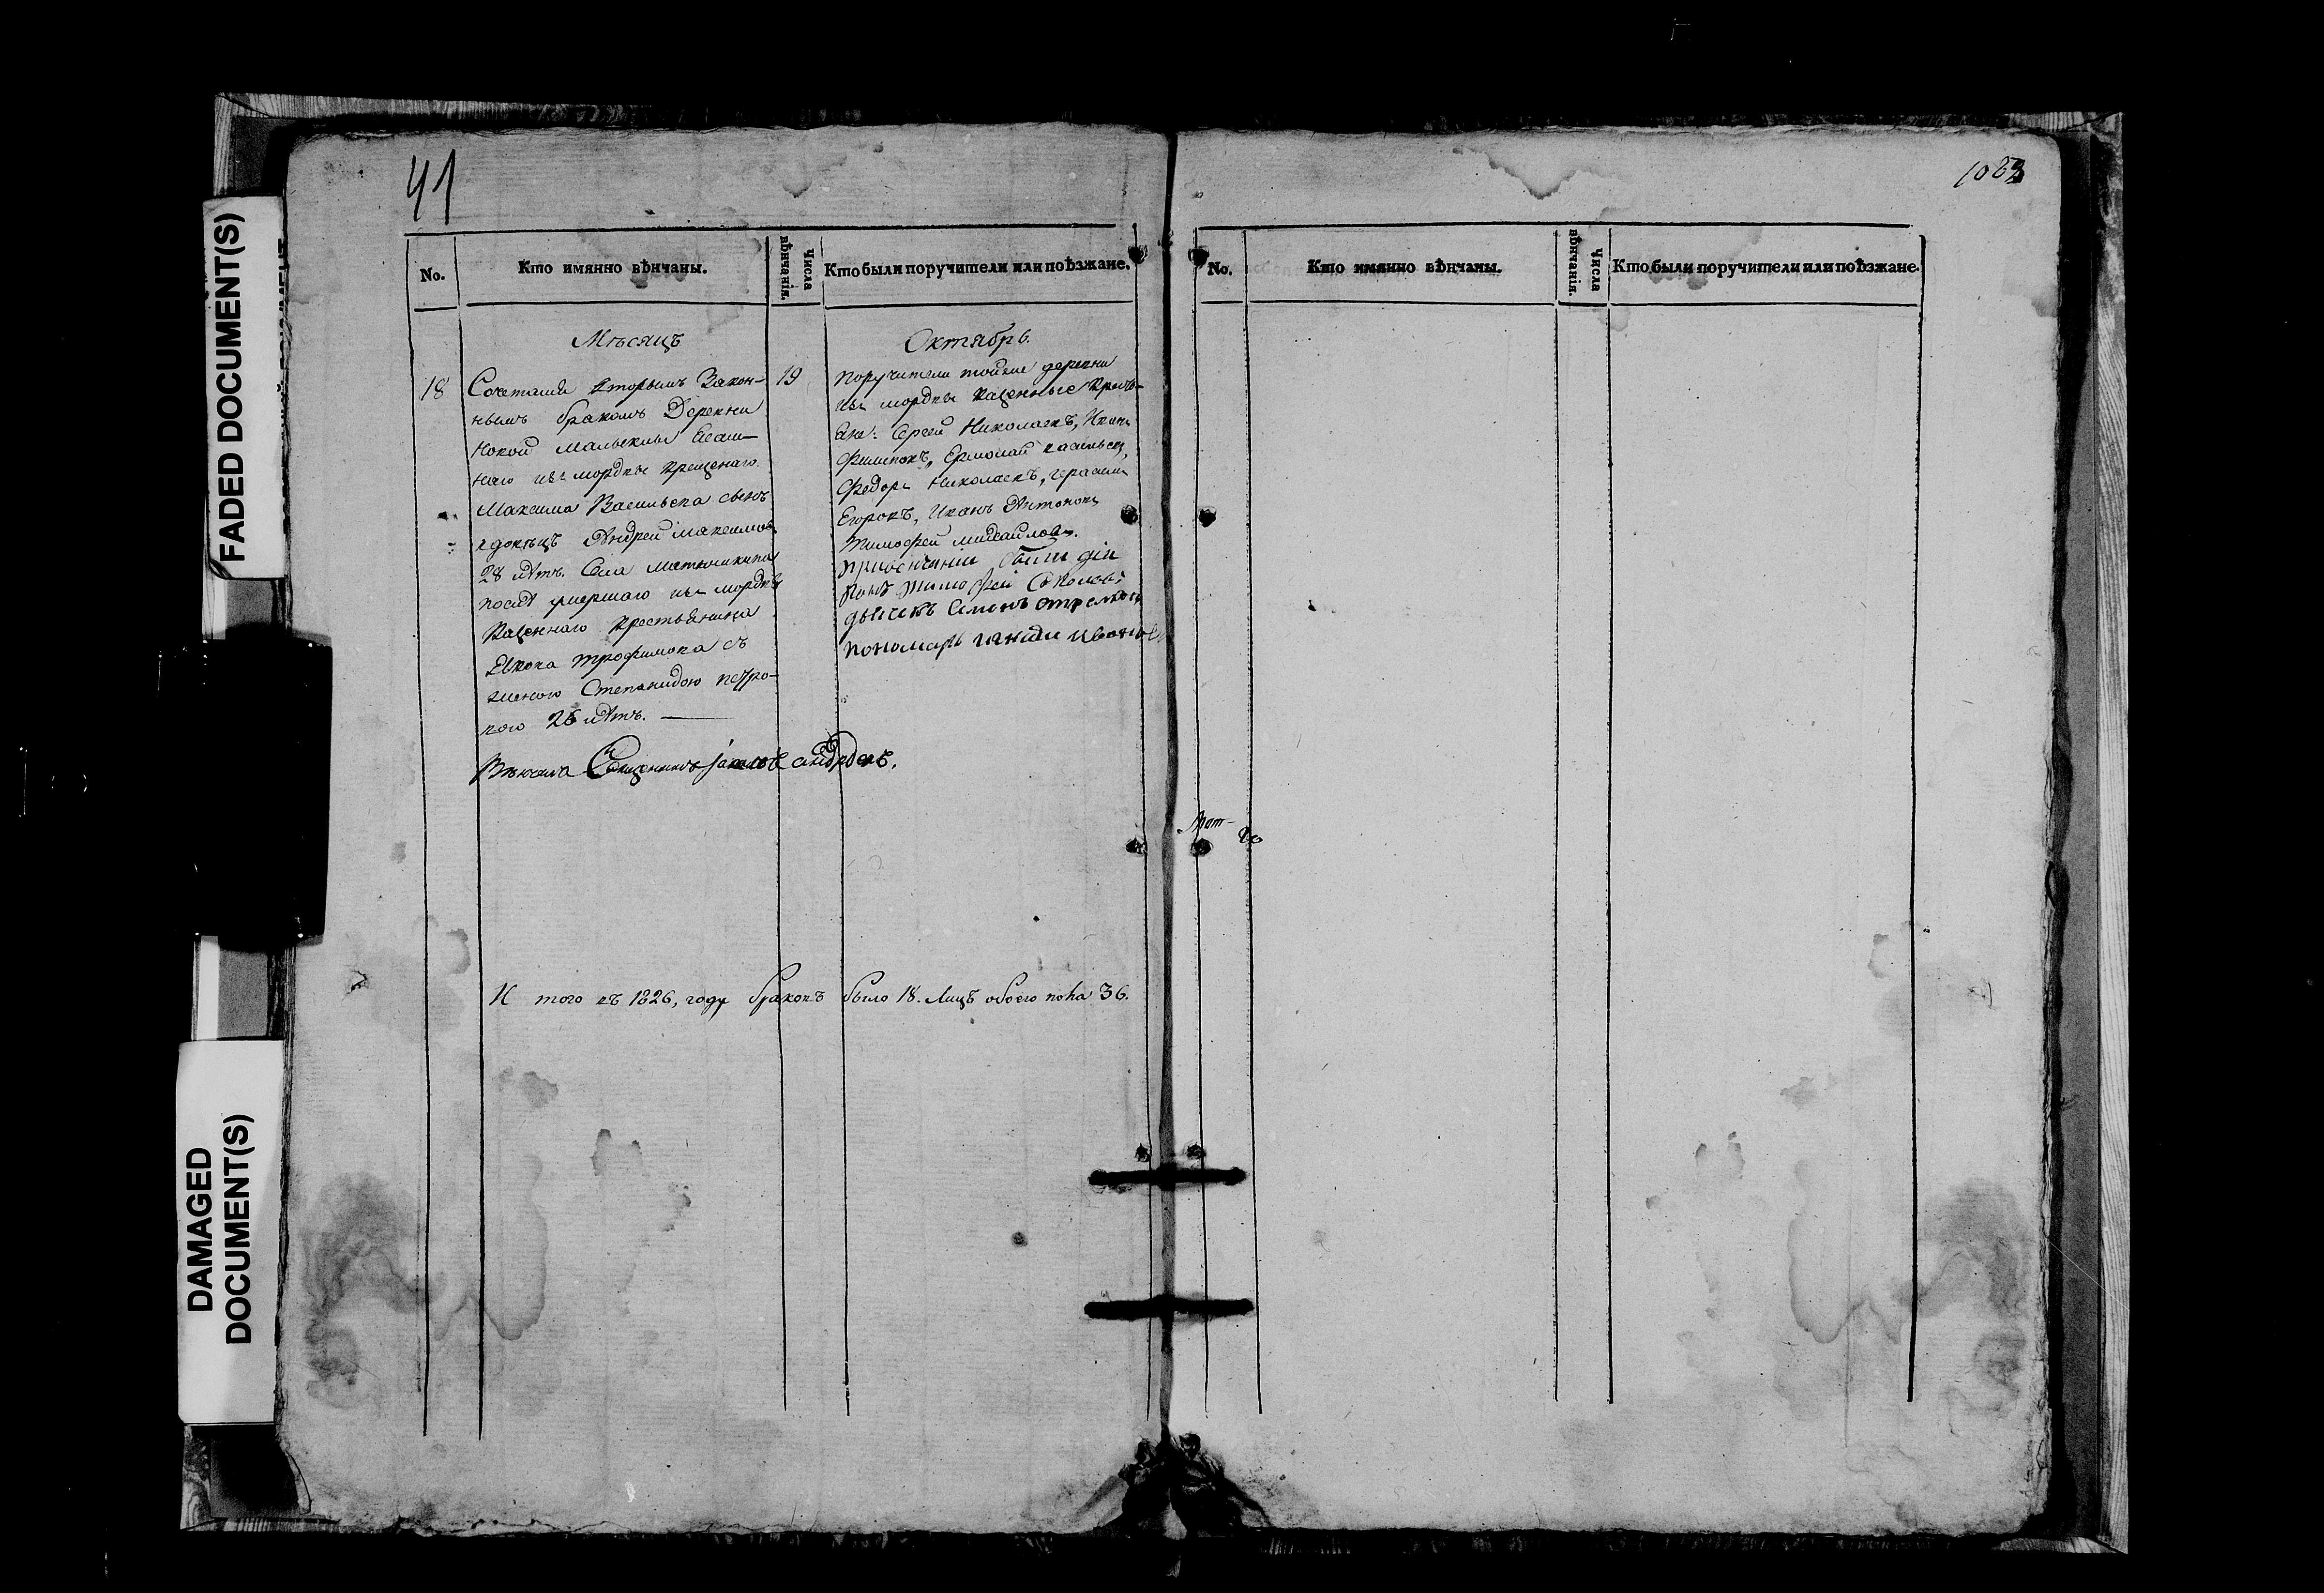 FADED DOCUMENT(S)
DAMAGED
DOCUMENT(S)
41
No.
Кто имянно вѣнчаны.
Числа
вѣнчанія.
Кто были поручители или поѣзжане.
Мѣсяцъ
Октябрь.
18
Сочетался вторымъ Закон-
нымъ бракомъ Деревни
Новой Малыклы
изъ мордвы крещенаго
Максима Васильева сынъ
вдовецъ Андрей Максимовъ
28 лѣтъ. Села
послѣ умершаго изъ мордвы
Казеннаго Крестьянина
Трофимова съ
женою Степанидою Петро-
вою 26 лѣтъ.
19
Поручители тойже деревни
изъ мордвы Казенные Кресть-
яне: Сергей Николаевъ, Иванъ
Филиповъ, Ермолай Васильевъ,
Федоръ Николаевъ, Герасимъ
Егоровъ, Иванъ Антоновъ,
Тимофей Михайловъ.
При венчаніи были діа
конъ Тимофей Соколовъ
дьячекъ Семенъ
пономарь Ивановъ
Венчалъ Священникъ
И того въ 1826, году браковъ было 18. Лицъ обоего пола 36.
1083
No.
Кто имянно вѣнчаны.
Числа
вѣнчанія.
Кто были поручители или поѣзжане.